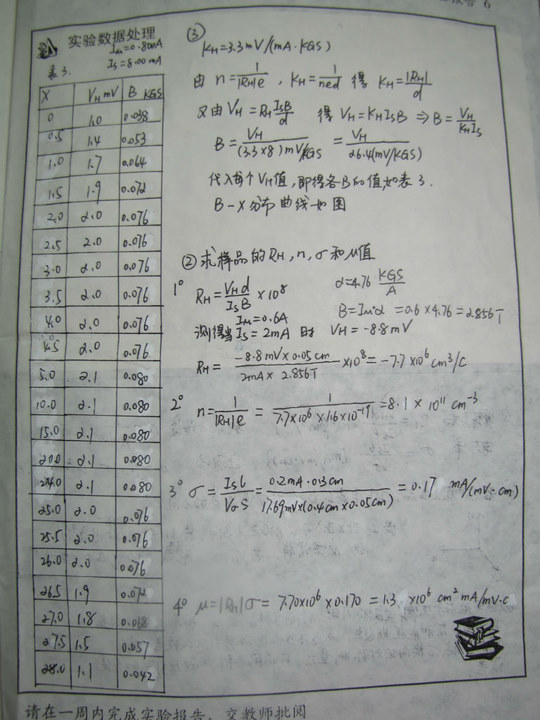 实验数据处理
Im=0.800A
表3. Is=8.00mA
X VH mV B KGS
0 1.0 0.038
0.5 1.4 0.053
1.0 1.7 0.064
1.5 1.9 0.072
2.0 2.0 0.076
2.5 2.0 0.076
3.0 2.0 0.076
3.5 2.0 0.076
4.0 2.0 0.076
4.5 2.0 0.076
5.0 2.1 0.080
10.0 2.1 0.080
15.0 2.1 0.080
20.0 2.1 0.080
24.0 2.1 0.080
25.0 2.0 0.076
25.5 2.0 0.076
26.0 2.0 0.076
26.5 1.9 0.072
27.0 1.8 0.068
27.5 1.5 0.057
28.0 1.1 0.042
③
KH=3.3mV/(mA·KGS)
由 n=1/|RH|e , KH=1/ned 得 KH=|RH|/d
又由 VH=RH IsB/d 得 VH=KHIsB ⇒ B=VH/KHIs
B=VH/(3.3×8)mV/KGS =VH/26.4(mV/KGS)
代入每个VH值,即得各B的值如表3.
B-X分布曲线如图
②求样品的RH,n,σ和μ值
1° RH=VHd/IsB ×10⁸ α=4.76 KGS/A
Im=0.6A B=Im·α=0.6×4.76=2.856T
测得当Is=2mA时 VH=-8.8mV
RH=-8.8mV×0.05cm/2mA×2.856T ×10⁸=-7.7×10⁶cm³/C
2° n=1/|RH|e = 1/7.7×10⁶×1.6×10⁻¹⁹ =8.1×10¹¹cm⁻³
3° σ=IsL/VσS=0.2mA·0.3cm/17.69mV×(0.4cm×0.05cm) =0.17 mA/(mV·cm)
4° μ=|RH|σ=7.70×10⁶×0.170=1.3×10⁶cm²mA/mV·C
请在一周内完成实验报告,交教师批阅